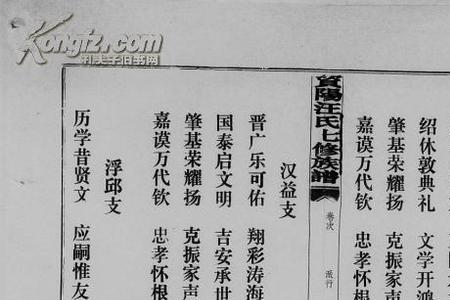 Kongfz.com
孔夫子旧书网
绍休敦典礼 文学开鸿
肇基荣耀扬 克振家声
嘉谟万代钦 忠孝怀根
資陽汪氏七修族譜 卷次 派行
汉益支
晋广乐可佑 翔彩涛海
国泰启文明 吉安承世
肇基荣耀扬 克振家声
嘉谟万代钦 忠孝怀根
浮邱支
历学昔贤文 应嗣惟友